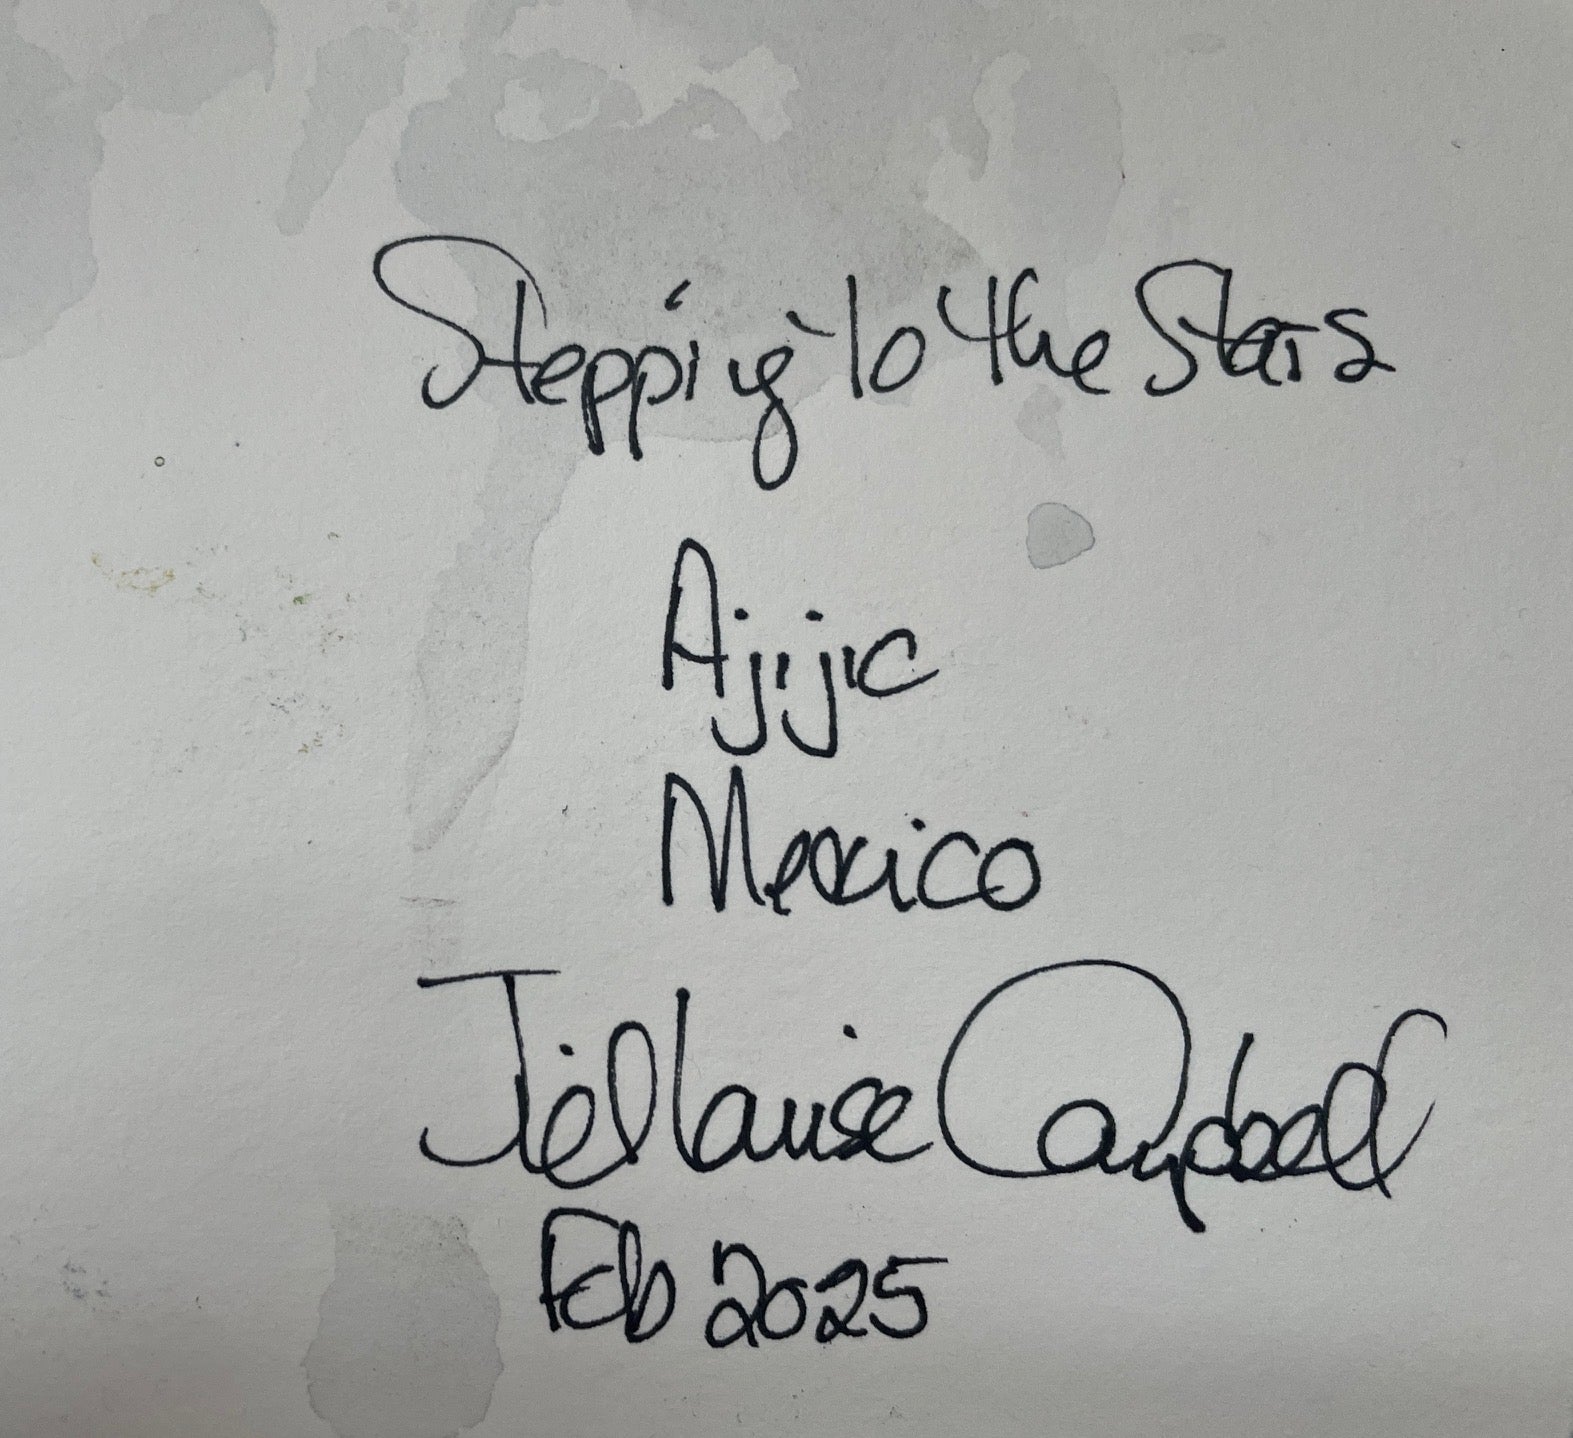 Stepping to the Stars
Ajijic
Mexico
Jill Louise Campbell
Feb 2025